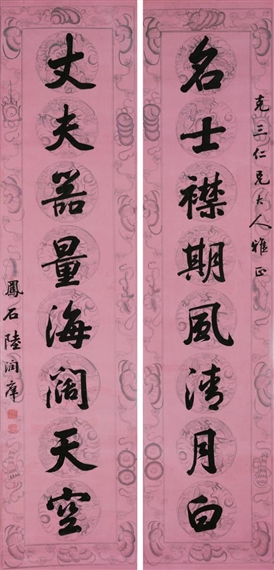 克三仁兄大人雅正
名士襟期風清月白
丈夫器量海闊天空
鳳石陸潤庠